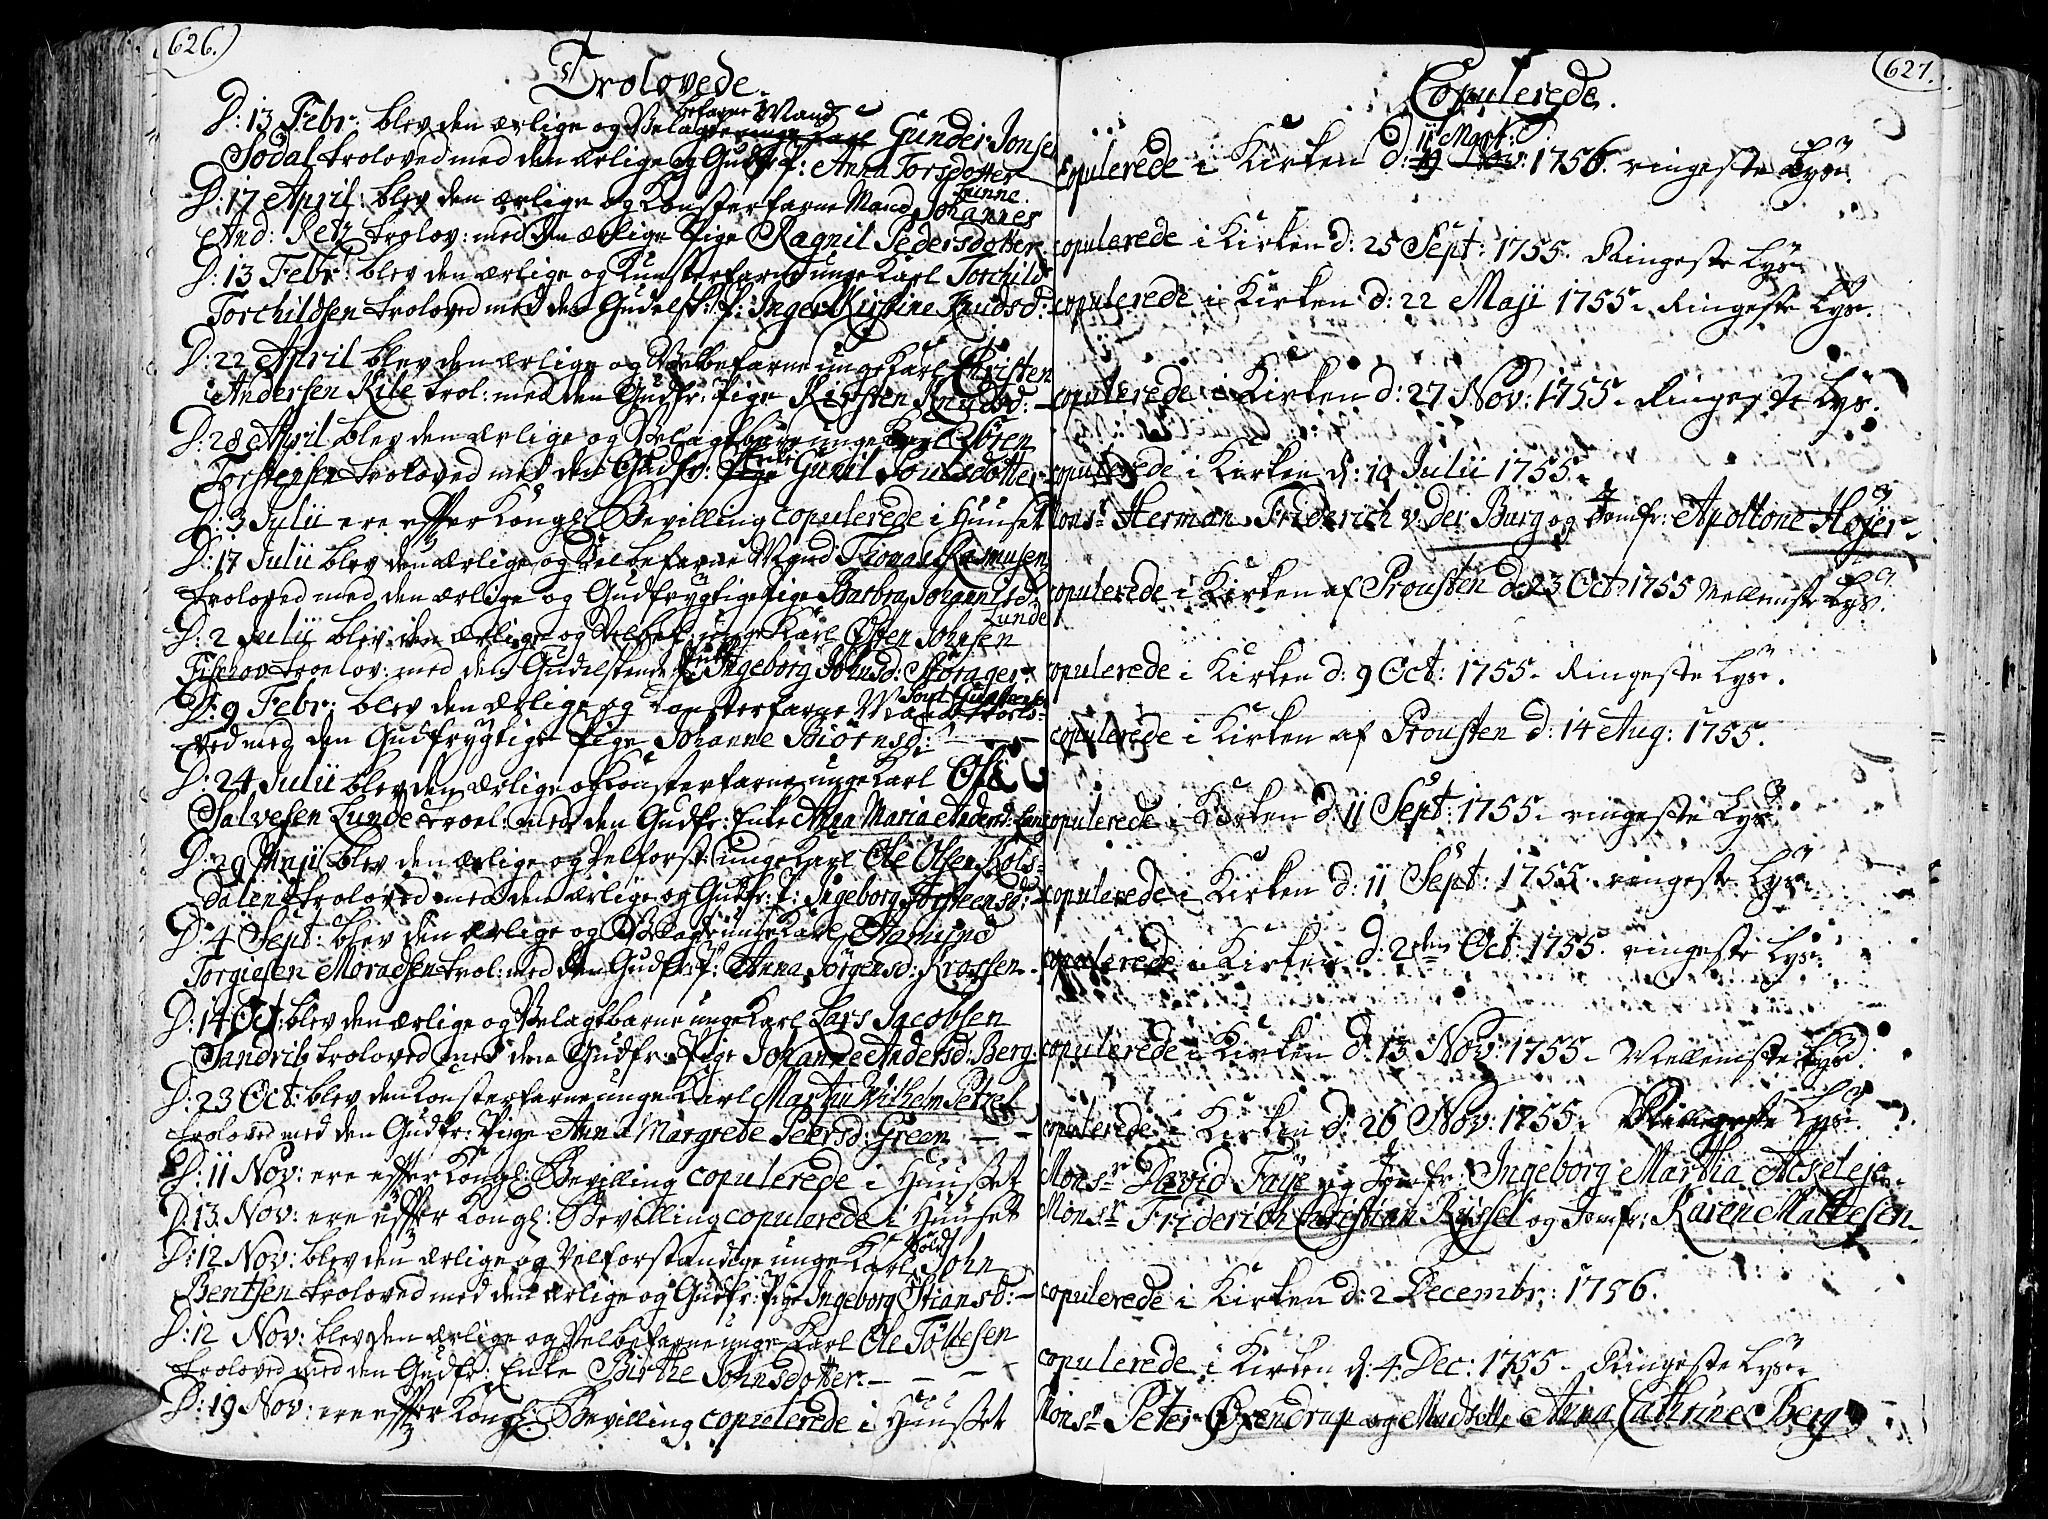 626.
Trolovede.
D: 13 Febr: blev den ærlige og Velagte unge Karl Gunder Jonsen
belagne Mand
Sødal troloved med den ærlige og Gudfr: P: Anna Torsdotter
Qvinne
D: 17 April: blev den ærlige og Konsterfarne Mand Johannes
And: Retz trolov: med den ærlige Pige Ragnil Pedersdotter
D: 13 Febr: blev den ærlige og Kunsterfarne unge Karl Torchild
Torchildsen troloved med den Gudelsk: P: Inger Kirstine Knudsd:
D: 22 April blev den ærlige og Velbefarne unge Karl Christen
Andersen Kile trol: med den Gudfr: Pige Kirsten Knudsd: —
D: 28 April blev den ærlige og Velagtbare unge Karl Søren
Torstensen troloved med den Gudfr: Pige Gunil Poulsdotter
Enke
D: 3 Julii ere efter Kongl: Bevilling copulerede i Huuset
D: 17 Julii blev den ærlige og Velbefarne Mand Thomas Rasmusen
troloved med den ærlige og Gudfrygtige Pige Barbra Jørgensd:
Lunde
D: 2 Julii blev den ærlige og Velbef: unge Karl Østen Johnsen
Fiskov troelov: med den Gudelskende Enke Ingeborg Johnsd: Storager
D: 9 Febr: blev den ærlige og Konsterfarne Mand
ved med den Gudfrygtige Pige Johanne Biørnsd: — — —
D: 24 Julii blev den ærlige og Konsterfarne unge Karl Ole
Salvesen Lunde troel: med den Gudfr: Enke Anna Maria Andersd:
D: 29 Maji blev den ærlige og Velforst: unge Karl Ole Olsen Kols-
dalen troloved med den ærlige og Gudfr: P: Ingeborg Torsteensd: —
D: 4 Sept: blev den ærlige og Velagte unge Karl Aamund
Torgiesen Moradsen trol: med den Gudfr: P: Anna Jørgensd: Krossen
D: 14 Oct: blev den ærlige og Velagtbarne unge Karl Lars Jacobsen
Sandrib troloved med den Gudfr: Pige Johanne Andersd: Berg.
D: 23 Oct: blev den Konsterfarne unge Karl Martin Wilhelm Petzel
troloved med den Gudfr: Pige Anna Margrete Petersd: Green — —
D: 11 Nov: ere efter Kongl: Bevilling copulerede i Huuset
D: 13. Nov: ere efter Kongl: Bevilling copulerede i Huuset
D: 12 Nov: blev den ærlige og Velforstandige unge Karl John
Bentsen troloved med den ærlige og Gudfr: Pige Ingeborg Stiansd: —
D: 12 Nov: blev den ærlige og Velbefarne unge Karl Ole Tøllesen
troloved med den Gudfr: Enke Birthe Johnsdotter. — — —
D: 19 Nov: ere efter Kongl: Bevilling copulerede i Huuset
627.
Copulerede.
11 Mart:
copulerede i Kirken d: 1756. ringeste Lyse.
copulerede i Kirken d: 25 Sept: 1755. Ringeste Lyse
copulerede i Kirken d: 22 Maji 1755. Ringeste Lyse.
copulerede i Kirken d: 27 Nov: 1755. Ringeste Lys.
copulerede i Kirken d: 10 Julii 1755.
Monsr Herman Friderich v: der Burg og Jomfr: Apollone Høyer
copulerede i Kirken af Prousten d: 23 Oct: 1755 Mellemste Lys.
copulerede i Kirken d: 9 Oct: 1755. Ringeste Lyse.
copulerede i Kirken af Prousten d: 14 Aug: 1755.
copulerede i Kirken d: 11 Sept: 1755. ringeste Lyse
copulerede i Kirken d: 11 Sept: 1755. ringeste Lyse
copulerede i Kirken d: 2den Oct: 1755. ringeste Lyse
copulerede i Kirken d: 13 Nov: 1755. Mellemste Lyse.
copulerede i Kirken d: 26 Nov: 1755. Lyse.
Monsr David Faye og Jomfr: Ingeborg Martha
Monsr Friderich Christian Ryssel og Jomfr: Karen Mattesen
copulerede i Kirken d: 2 Decembr: 1756.
copulerede i Kirken d: 4. Dec: 1755. Ringeste Lyse
Monsr Peter Øxendrup og Anna Cathrine Berg